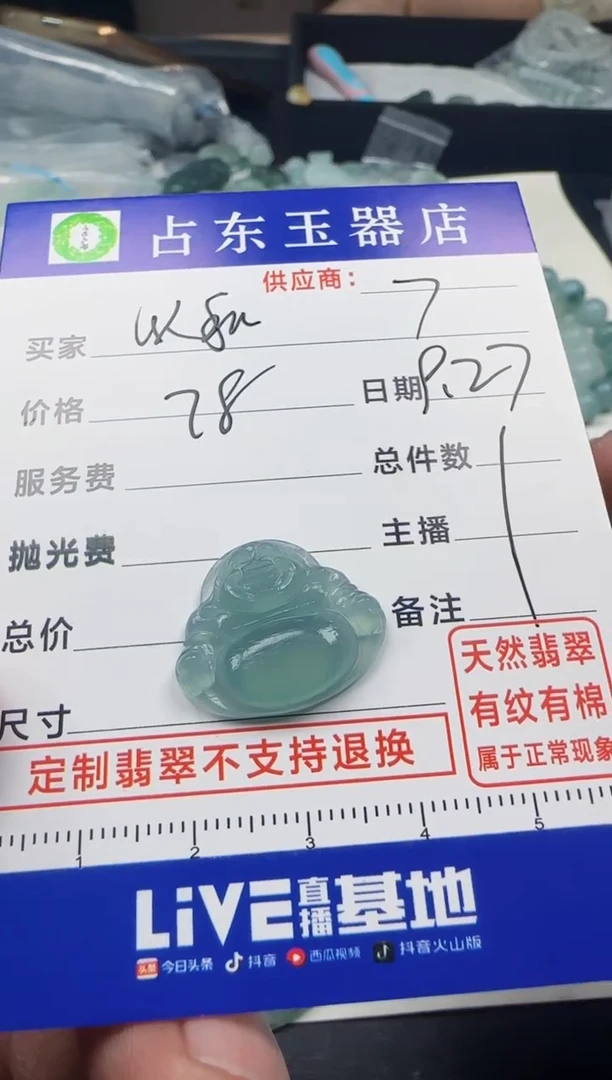 占东玉器店
供应商： 7
买家
价格 78 日期 9.27
服务费 总件数 1
抛光费 主播
总价 备注
尺寸
天然翡翠
有纹有棉
属于正常现象
定制翡翠不支持退换
1 2 3 4 5
LiVE直播基地
头条 今日头条 抖音 西瓜视频 抖音火山版